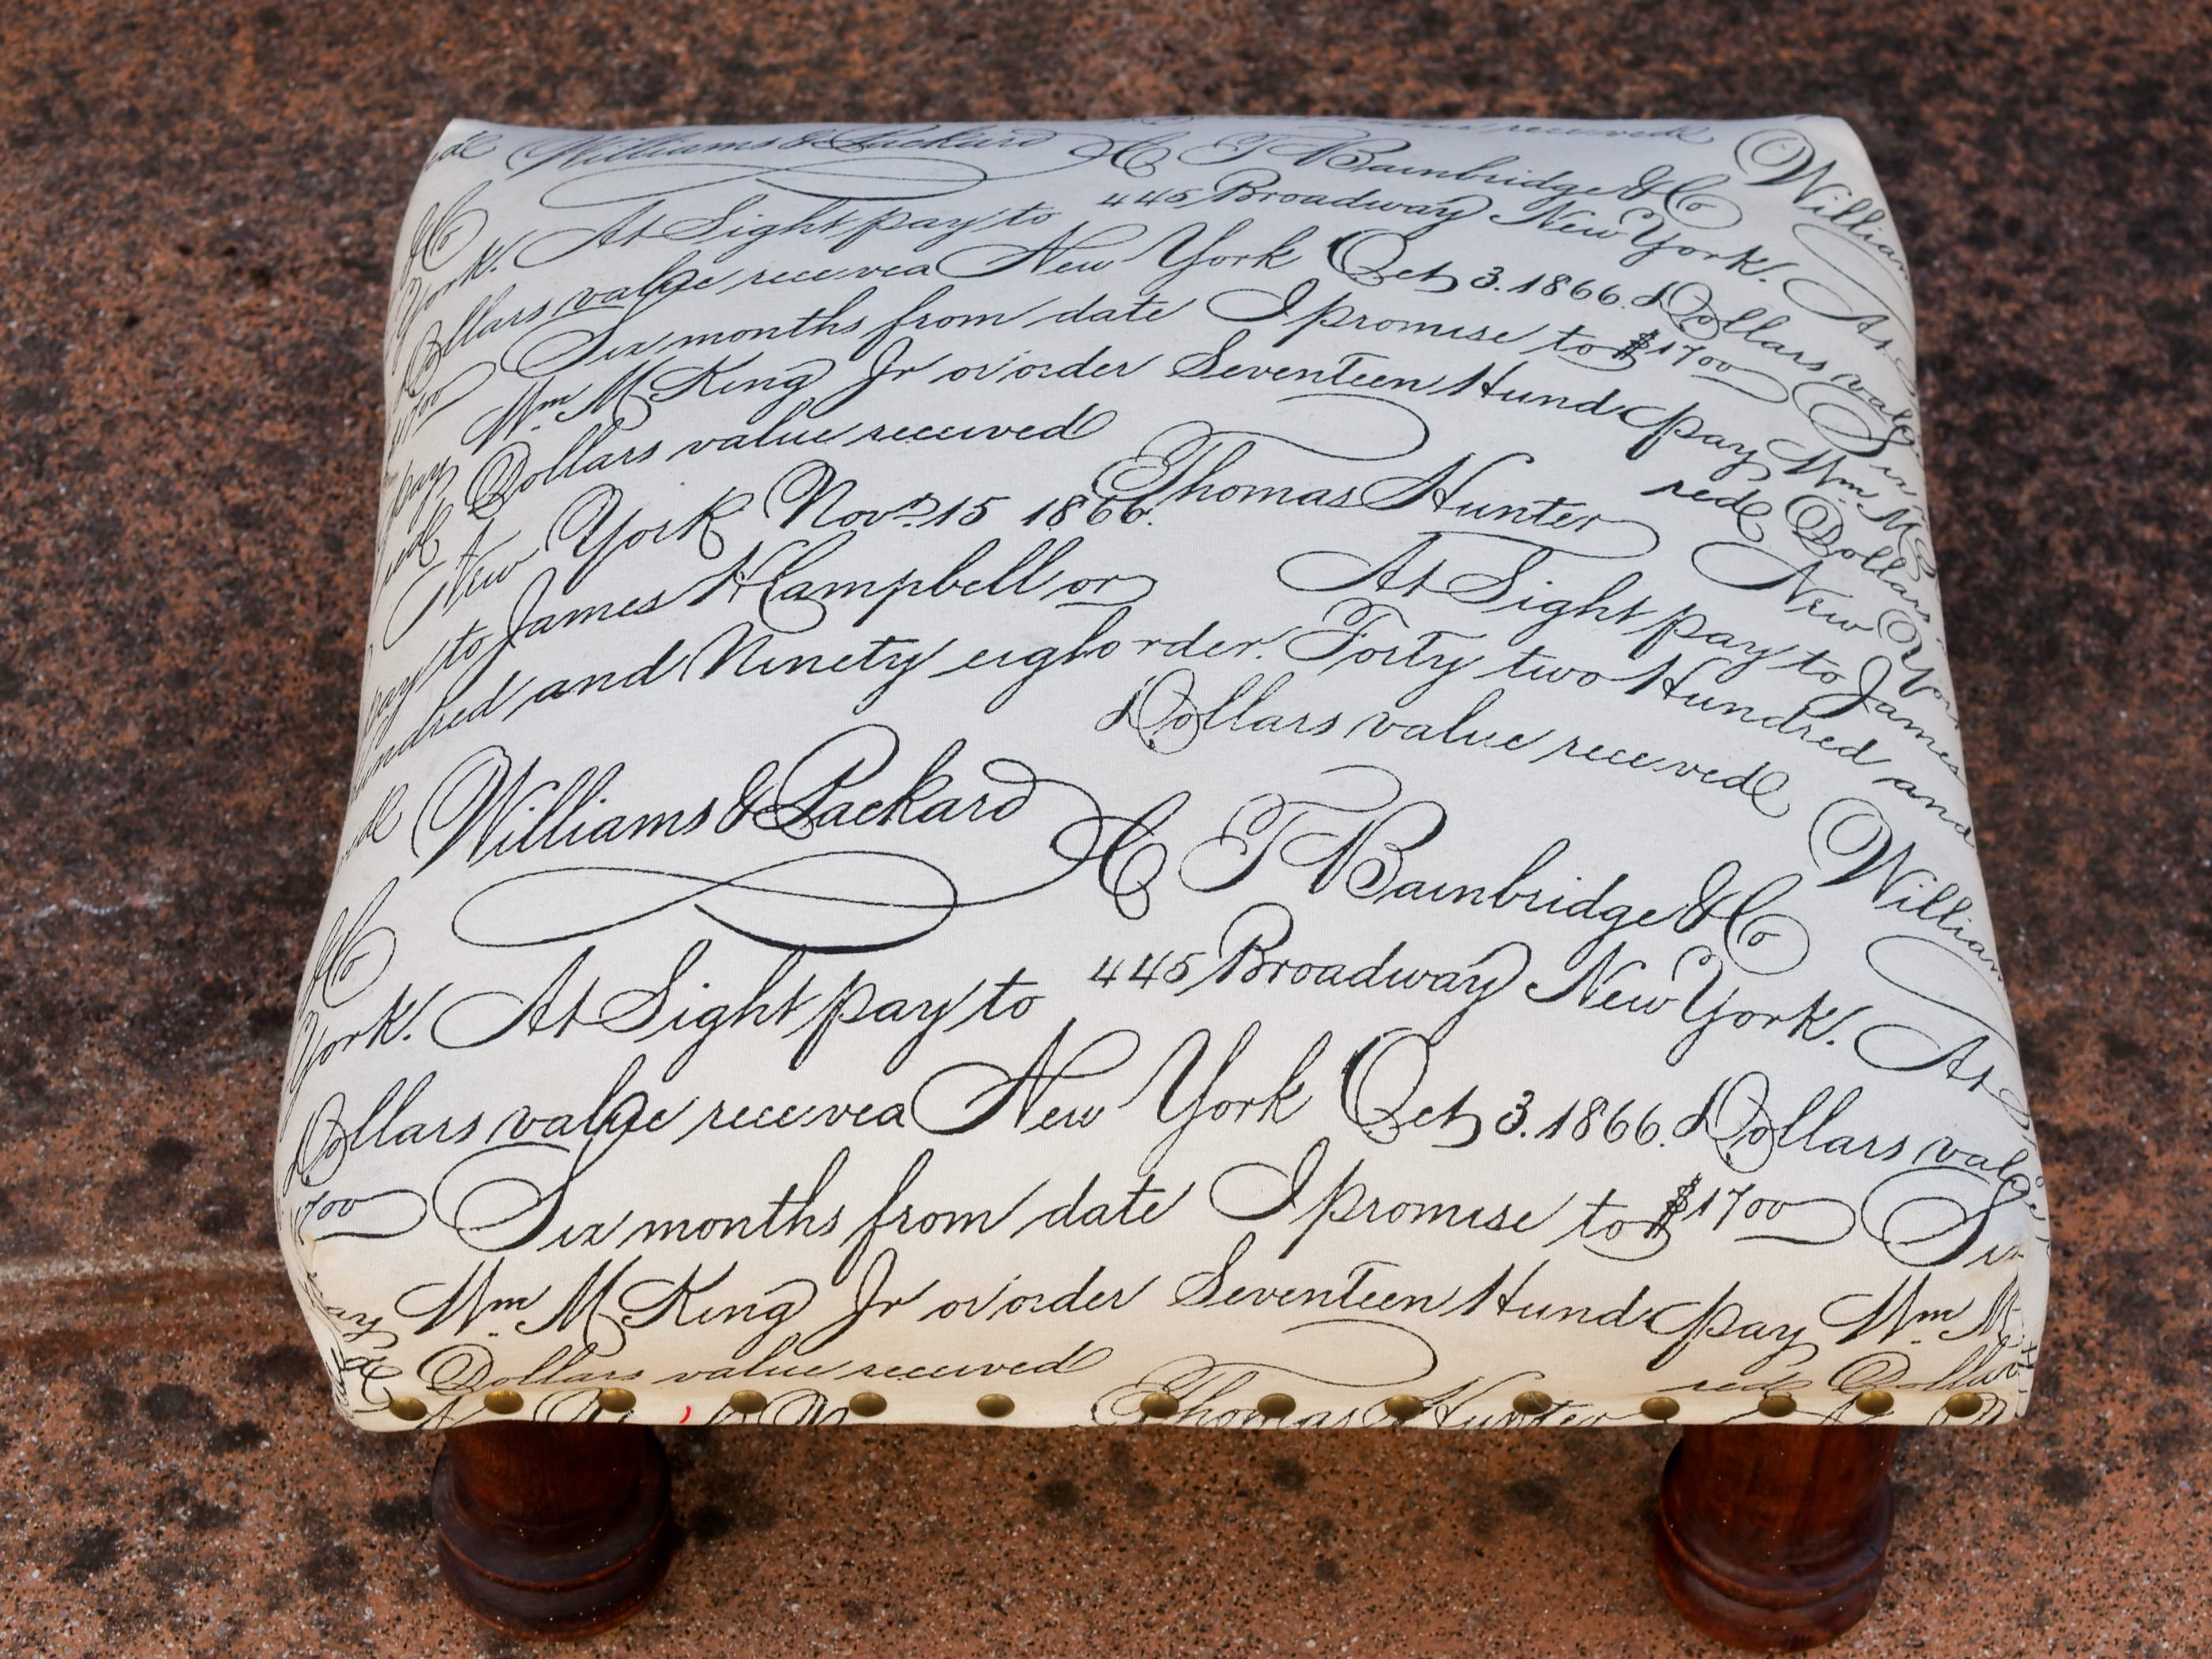 de Williams & Packard C T Bainbridge & Co William
& Co 445 Broadway New York. At
York. At Sight pay to
Dollars value receivea New York Oct 3. 1866. Dollars value
1700 Six months from date I promise to $1700 Six
pay Wm M King Jr or order Seventeen Hund pay Wm M
Dollars value received Thomas Hunter red Dollar
New York Nov. 15 1866. At Sight pay to James New Yor
pay to James H Campbell or
Hundred and Ninety eigh order. Forty two Hundred and
Dollars value received
de Williams & Packard C T Bainbridge & Co William
& Co 445 Broadway New York. At
York. At Sight pay to
Dollars value receivea New York Oct 3. 1866. Dollars value
700 Six months from date I promise to $1700 Six
Wm M King Jr or order Seventeen Hund pay Wm M
Dollars value received red Dollar
Thomas Hunter